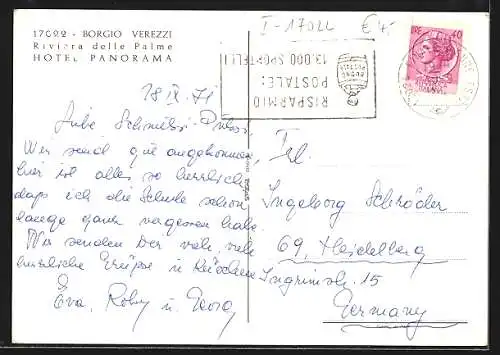 17022 - BORGIO VEREZZI
Riviera delle Palme
HOTEL PANORAMA
I-17022 €4,-
RISPARMIO
POSTALE:
13.000 SPORTELLI
LIRE 40
18 IX. 71
Liebe
Wir sind gut angekommen,
hier ist alles so herrlich
daß ich die Schule schon
lange ganz vergessen habe.
Wir senden Dir viele, viele
herzliche Grüße u
Eva, Roby u. Georg
Frl.
Ingeborg Schröder
69, Heidelberg
Ingrimstr. 15
Germany